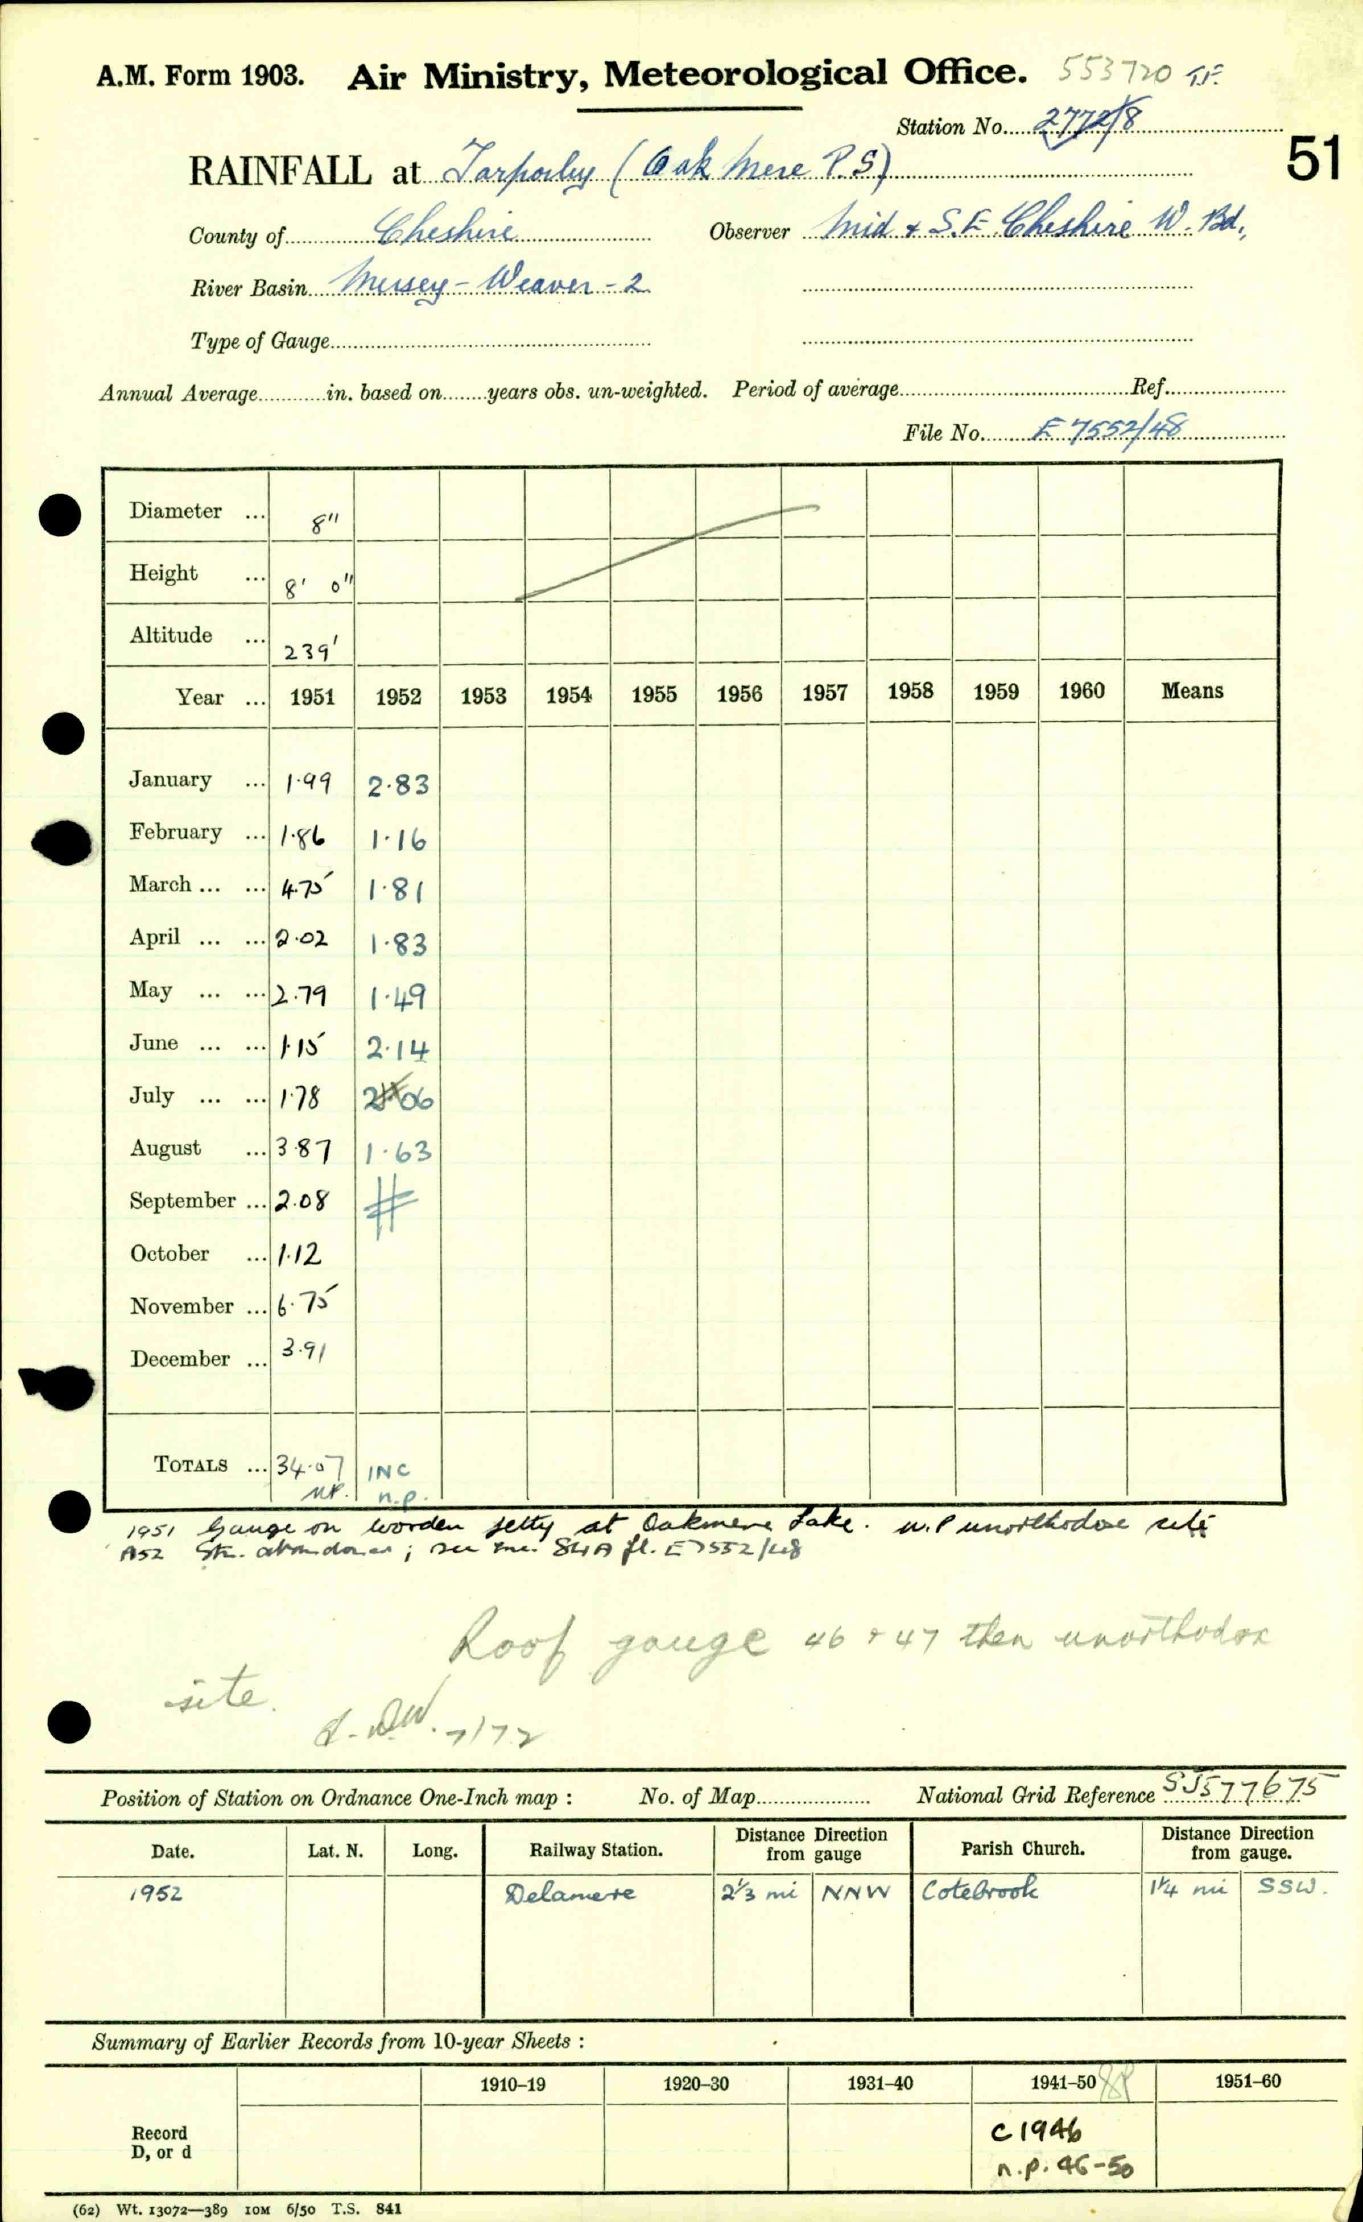 A.M. Form 1903. Air Ministry, Meteorological Office. 553720
Station No. 2772/8
51
RAINFALL at Tarporley (Oak Mere P.S)
County of Cheshire Observer Mid & S.E. Cheshire W. Bd.,
River Basin Mersey - Weaver - 2
Type of Gauge
Annual Average in. based on years obs. un-weighted. Period of average Ref.
File No. E 7552/48
Diameter ... 8"
Height ... 8' 0"
Altitude ... 239'
Year ... 1951 1952 1953 1954 1955 1956 1957 1958 1959 1960 Means
January ... 1.99 2.83
February ... 1.86 1.16
March ... ... 4.75 1.81
April ... ... 2.02 1.83
May ... ... 2.79 1.49
June ... ... 1.15 2.14
July ... ... 1.78 2.06
August ... 3.87 1.63
September ... 2.08 #
October ... 1.12
November ... 6.75
December ... 3.91
TOTALS ... 34.07 INC
n.p. n.p.
1951 Gauge on wooden jetty at Oakmere Lake. n.P unorthodox site
Stn. abandoned; see 84A fl. E7552/48
Roof gauge 46 + 47 then unorthodox
site.
7/72
Position of Station on Ordnance One-Inch map : No. of Map National Grid Reference SJ577675
Date. Lat. N. Long. Railway Station. Distance Direction from gauge Parish Church. Distance Direction from gauge.
1952 Delamere 2⅓ mi NNW Cotebrook 1¼ mi SSW.
Summary of Earlier Records from 10-year Sheets :
1910–19 1920–30 1931–40 1941–50 1951–60
Record
D, or d
C 1946
n.p. 46-50
(62) Wt. 13072—389 10M 6/50 T.S. 841